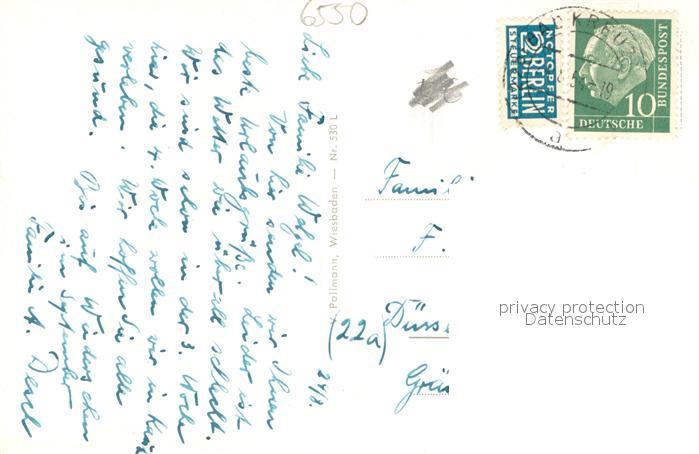 6550
24/8.
Liebe Familie Wetzel!
Von hier senden wir Ihnen
beste Urlaubsgrüße. Leider ist
das Wetter wie überall schlecht.
Wir sind schon in der 3. Woche
hier, die 4. Woche wollen wir in
verleben. Wir hoffen Sie alle
gesund.
Bis auf Wiedersehen
im September
Familie A.
Pollmann, Wiesbaden — Nr. 530 L
NOTOPFER
2 BERLIN
STEUERMARKE
BAD KREUZ
a
10
DEUTSCHE
BUNDESPOST
Famil
F.
(22a) Düss
Grä
privacy protection
Datenschutz